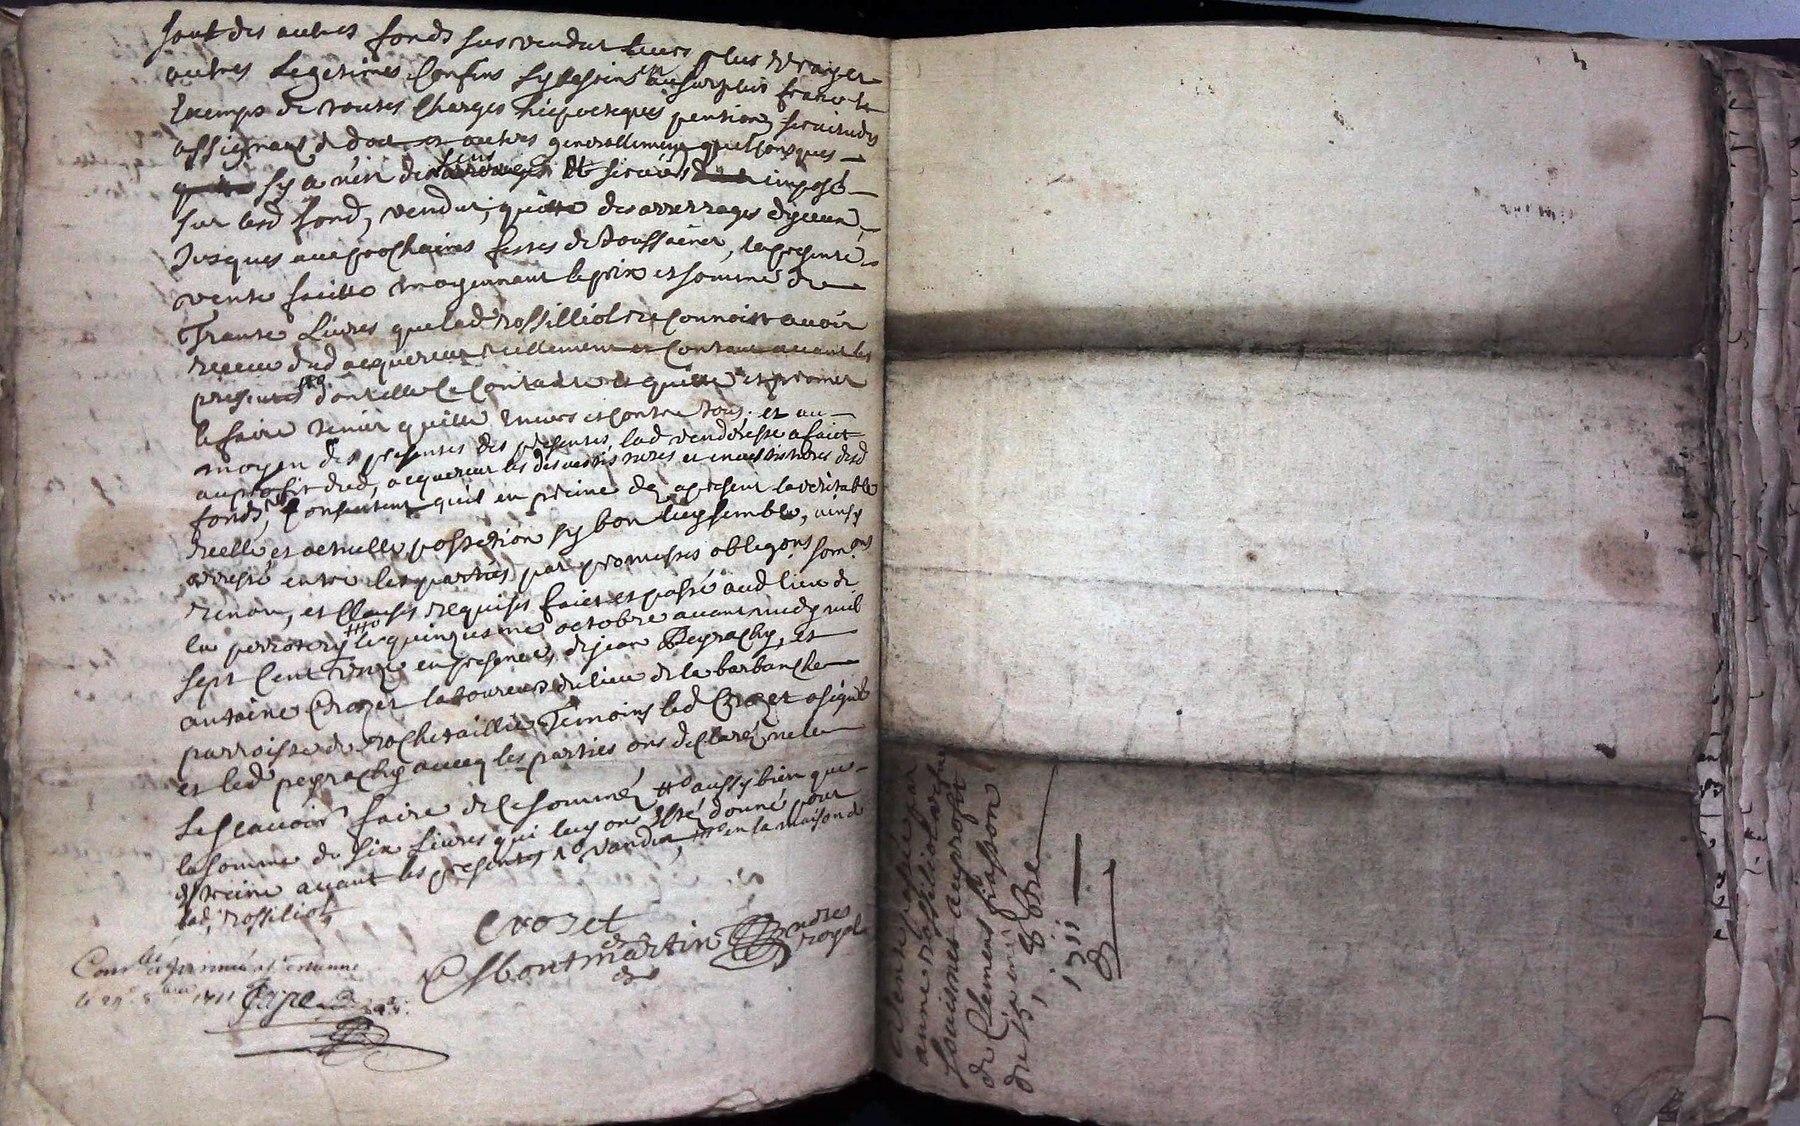 sont des autres fonds sus vendut leurs plus vray et
autres legetimes confins sy besoin en au surplus franc et
exemps de toutes charges hipoteques pention servitudes
assignaux de dot et autres generallement quelsonques
sy a n'est de sens et servis imposé
sur lesd fond, vendut, quitte des arrerrages diceux
jusques aux prochaines festes de toussaénct, la presente
vente faitte moyennant le prix et somme de
Trante Livres que lad rossilliol reconnoit avoir
receu dud acquereur reellement et contant avant les
presentes dont elle le contante et quitte et promet
le faire tenir quitte envers et contre tous, et au
moyen des presentes des presentes, lad venderesse a faict
au profit dud, acquereur les desvestitures et invistitures desd
fonds, consentent quil en preine dez apresent la veritable
reelle et actuelle possetion sy bon luy semble, ainsy
arresté entre les parties par promesses obligons somons
renon, et clauses requises faict et passé aud lieu de
la perrotery le quinziesme octobre avant midy mil
sept cent onze en presence, de jean Peyrachy, et
antoine Crozet laboureurs du lieu de la barbanche
parroisse de rochetaillié Temoins led Crozet a signé
et led peyrachy avecq les parties ons declaré ne le
scavoir faire de ce sommés aussy bien que
la somme de six Livres qui luy ons esté donné pour
estreine avant les presentes en la maison de
lad, rossiliol
crozet
Montmartin nore royal
Conlle et a st estienne
le 29e 8bre 1711
Vente passée par
anne rossiliol
au profit
de Clemens fiasson
du 15 8bre
1711